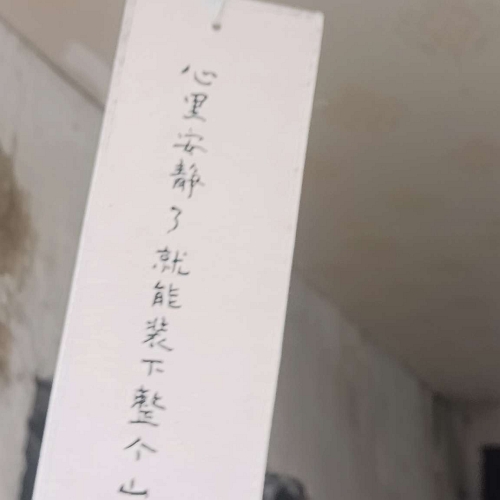 心里安静了就能装下整个山